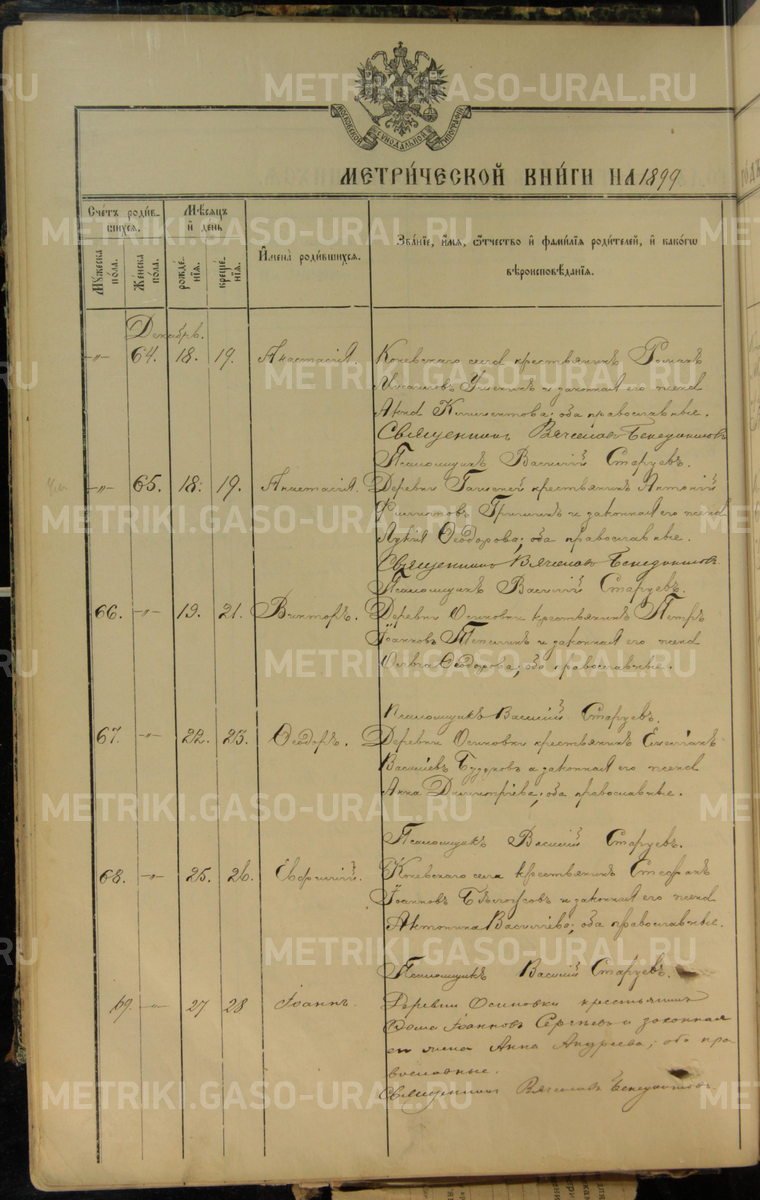 МОСКОВСКОЙ СѴНОДАЛЬНОЙ ТИПОГРАФІИ
МЕТРИ́ЧЕСКОЙ КНИ́ГИ НА 1899
Счетъ роди́вшихся.
Мѣсяцъ и день
Имена̀ роди́вшихся.
Зва́нїе, и́мя, ѻ҆́тчество и҆ фами́лїя роди́телей, и҆ како́гѡ
вѣроисповѣ́данїя.
Му́жеска по́ла.
Же́нска по́ла.
рожде́нїя.
креще́нїя.
Декабрь.
-"- 64. 18. 19. Анастасія. Коневскаго села крестьянинъ Романъ
и законная его жена
Анна Климентова; оба православные.
Священникъ Вячеславъ Бенедиктовъ
Псаломщикъ Василій Старцевъ.
-"- 65. 18. 19. Анастасія. Деревни крестьянинъ Антоній
Филиповъ и законная его жена
Ѳеодорова; оба православные.
Священникъ Вячеславъ Бенедиктовъ
Псаломщикъ Василій Старцевъ.
66. -"- 19. 21. Викторъ. Деревни Осиновки крестьянинъ Петръ
Іоанновъ и законная его жена
Ольга Ѳеодорова; оба православные.
Псаломщикъ Василій Старцевъ.
67. -"- 22. 23. Ѳеодоръ. Деревни Осиновки крестьянинъ
Василіевъ и законная его жена
Анна Димитріева; оба православные.
Псаломщикъ Василій Старцевъ.
68. -"- 25. 26. Евфимій. Коневскаго села крестьянинъ Стефанъ
Іоанновъ Бѣлоусовъ и законная его жена
Антонина Василіева; оба православные.
Псаломщикъ Василій Старцевъ.
69. -"- 27 28 Іоаннъ. Деревни Осиновки крестьянинъ
Іоанновъ и законная
его жена Анна Андреева; оба пра
вославные.
Священникъ Вячеславъ Бенедиктовъ.
METRIKI.GASO-URAL.RU